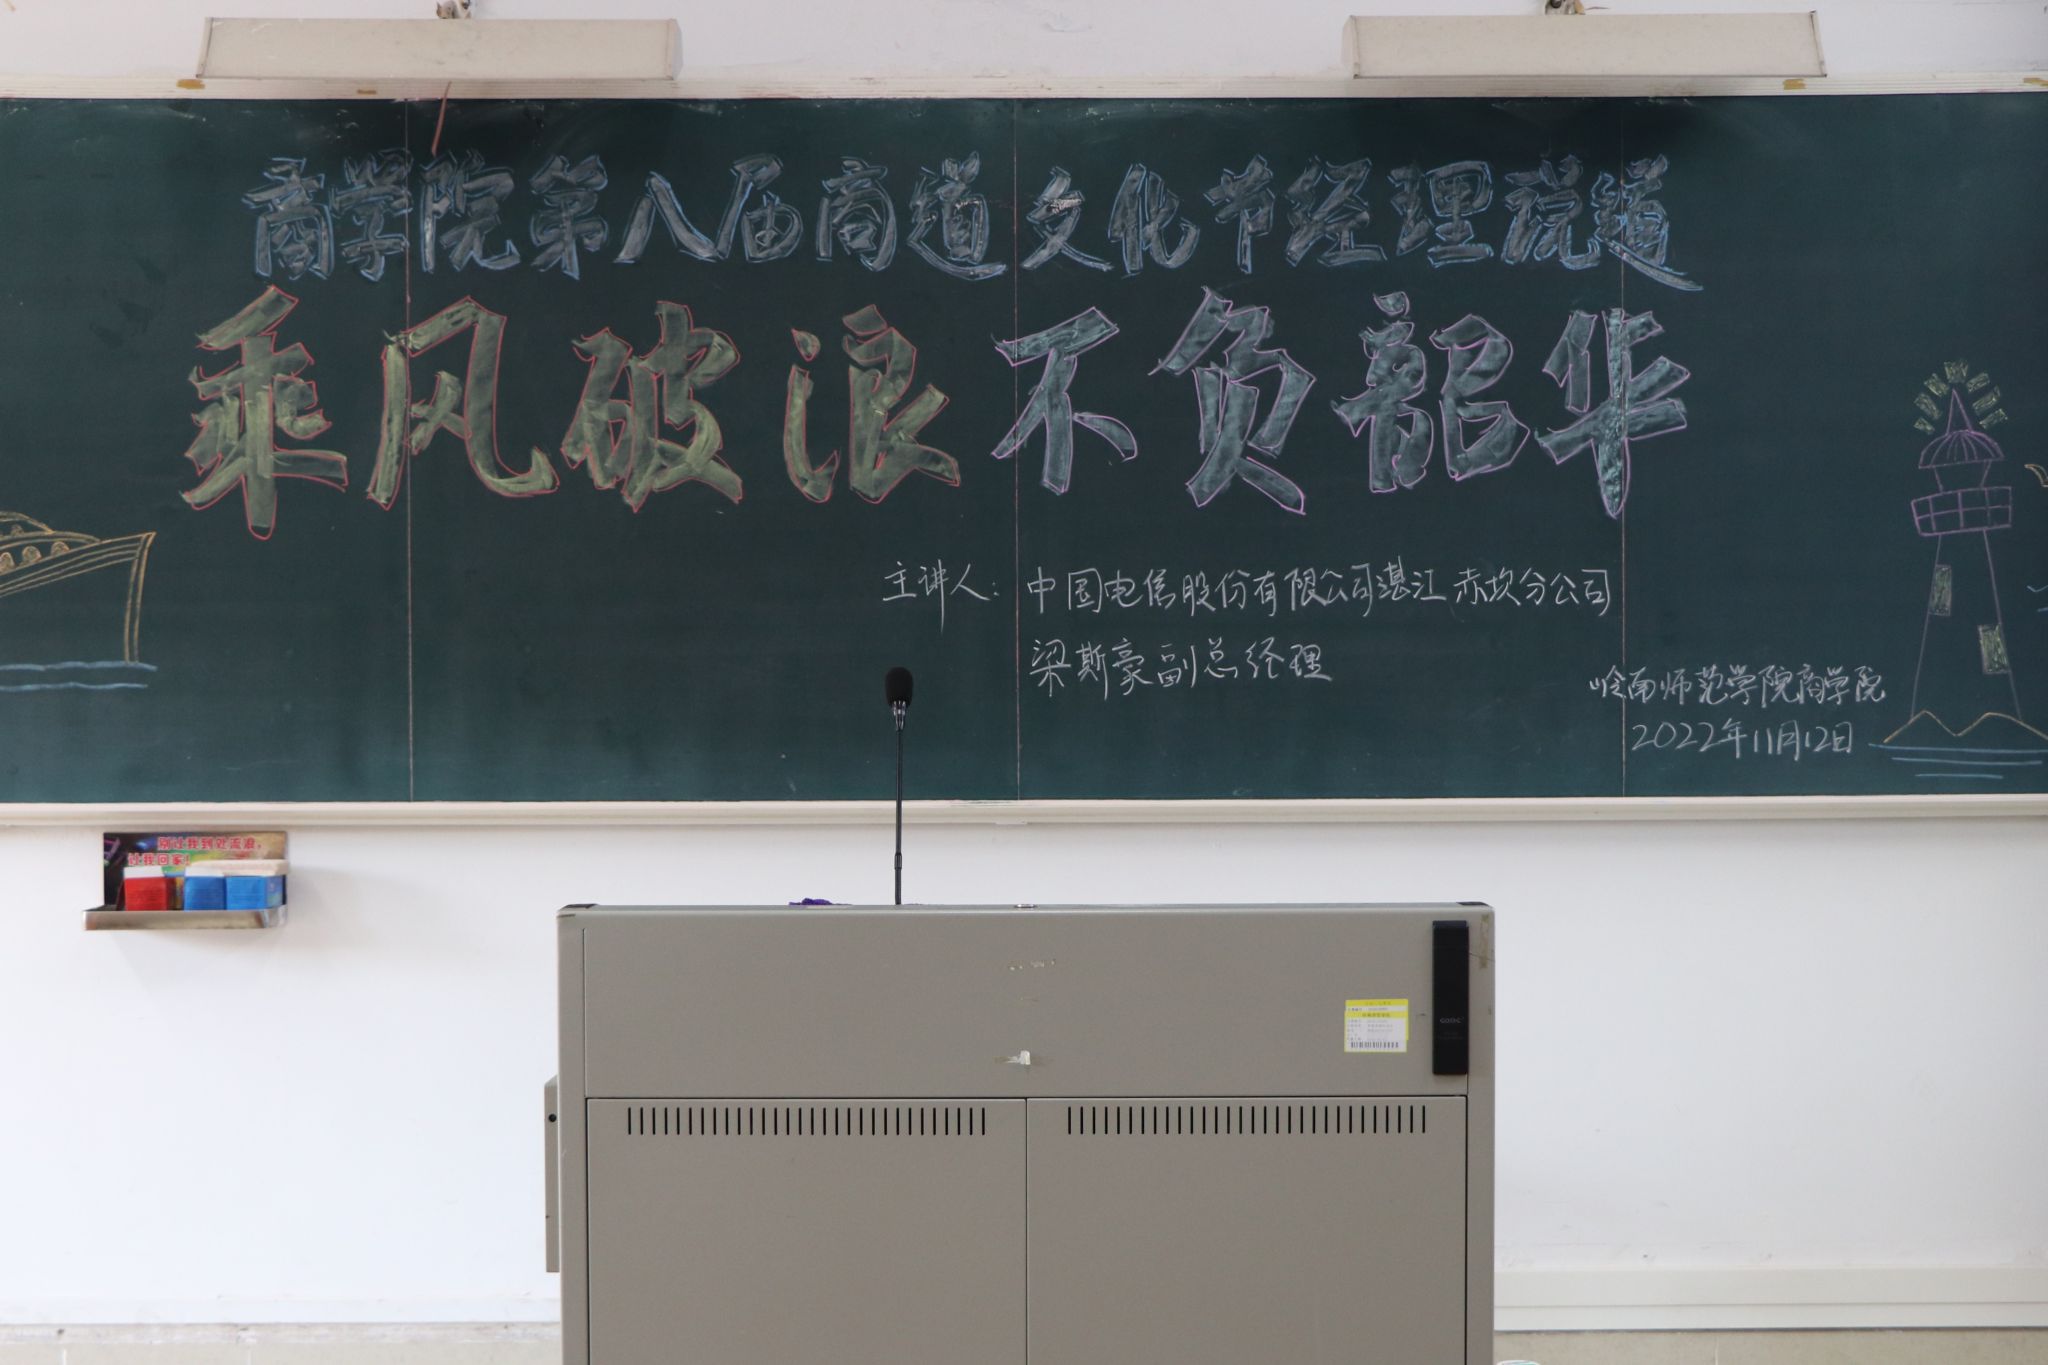 商学院第八届商道文化节经理说道
乘风破浪不负韶华
主讲人：中国电信股份有限公司湛江赤坎分公司
梁斯豪副总经理
岭南师范学院商学院
2022年11月12日
别让我到处流浪，
让我回家！